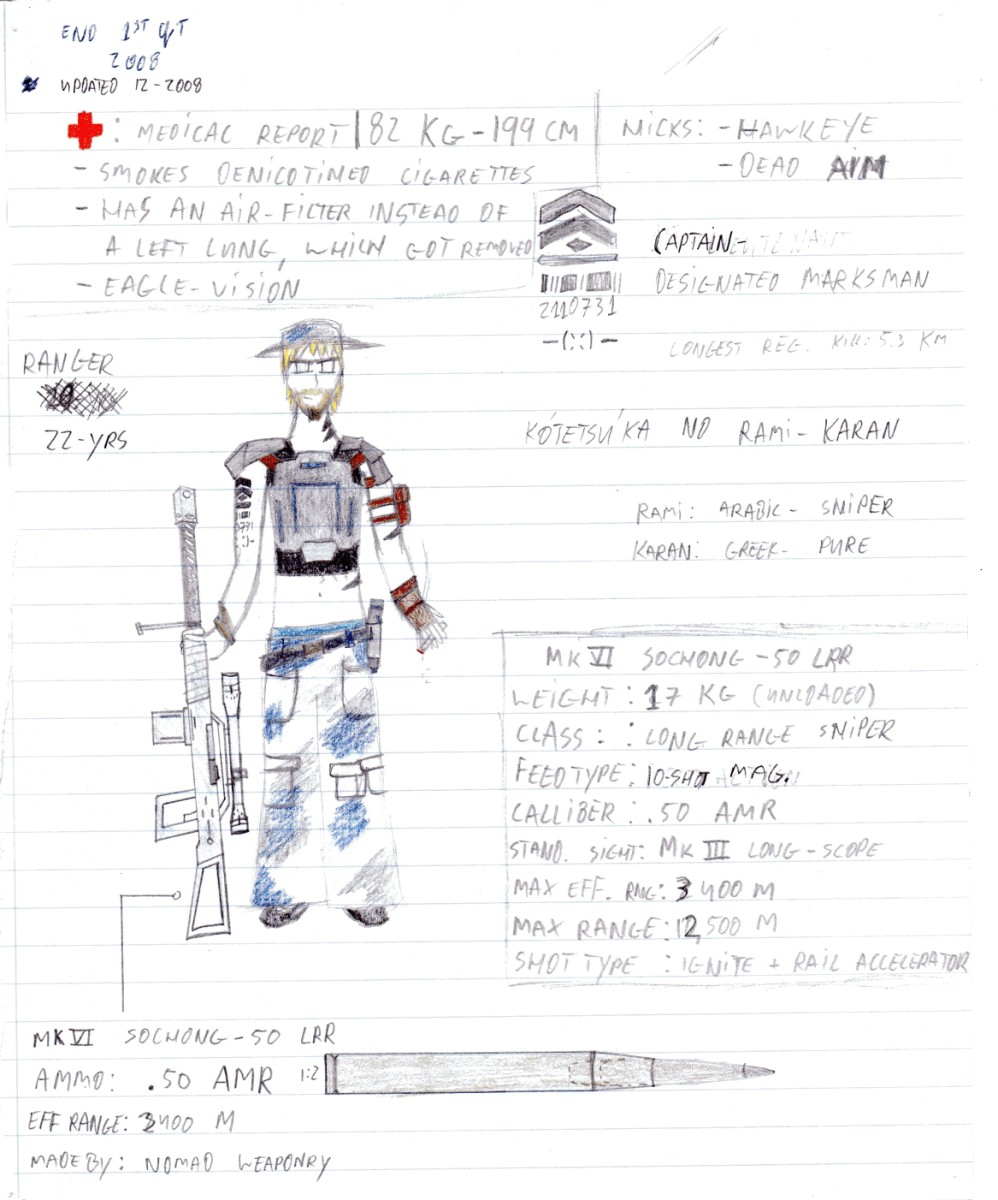 END 1ST QT
2008
UPDATED 12-2008
: MEDICAL REPORT | 82 KG - 199 CM
- SMOKES DENICOTINED CIGARETTES
- HAS AN AIR-FILTER INSTEAD OF
A LEFT LUNG, WHICH GOT REMOVED
- EAGLE-VISION
NICKS: - HAWKEYE
- DEAD AIM
CAPTAIN-
DESIGNATED MARKSMAN
2110731
-(::)-
LONGEST REG. KILL: 5.3 KM
RANGER
22-YRS
KÓTETSÚKA NO RAMI-KARAN
RAMI: ARABIC- SNIPER
KARAN: GREEK- PURE
0731
MK VI SOCHONG-50 LRR
WEIGHT: 17 KG (UNLOADED)
CLASS: : LONG RANGE SNIPER
FEEDTYPE: 10-SHOT MAG.
CALLIBER: .50 AMR
STAND. SIGHT: MK III LONG-SCOPE
MAX EFF. RNG: 3400 M
MAX RANGE: 12,500 M
SHOT TYPE : IGNITE + RAIL ACCELERATOR
MK VI SOCHONG-50 LRR
AMMO: .50 AMR 1:2
EFF RANGE: 3400 M
MADE BY: NOMAD WEAPONRY